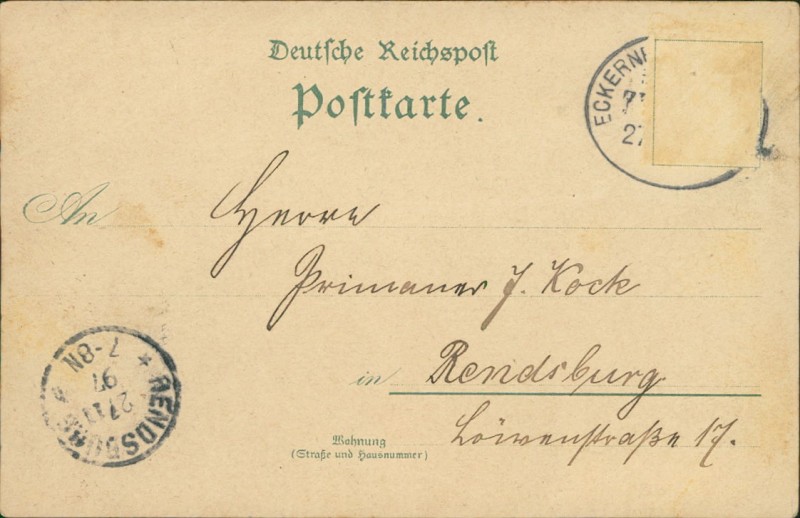 Deutsche Reichspost
Postkarte.
ECKERNF
71
27
An Herrn
Primaner J. Kock
in Rendsburg
Wohnung
(Straße und Hausnummer)
Löwenstraße 17.
RENDSBURG
27 11
97
7-8N